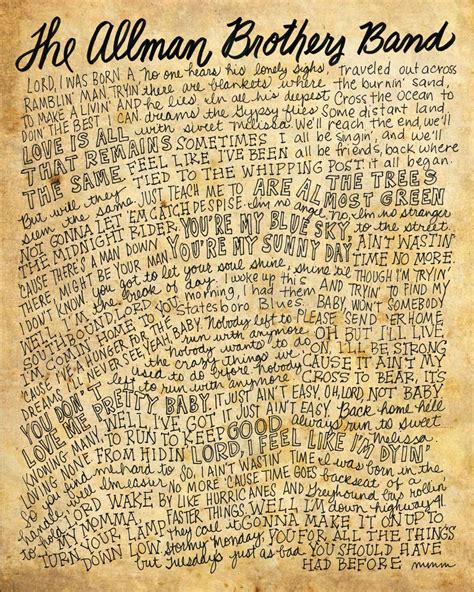 The Allman Brothers Band
LORD, I WAS BORN A No one hears his lonely sighs, Traveled out across
RAMBLIN' MAN, TRYIN' there are blankets where the burnin' sand,
TO MAKE A LIVIN' AND he lies In all his deepest Cross the Ocean to
DOIN' THE BEST I CAN dreams the Gypsy flies Some distant land,
LOVE IS ALL with sweet Melissa We'll reach the end, we'll
THAT REMAINS SOMETIMES I all be singin', and we'll
THE SAME FEEL LIKE I'VE BEEN all be friends, back where
TIED TO THE WHIPPING POST it all began.
But will they THE TREE'S
seem the same JUST TEACH ME TO ARE ALMOST GREEN
NOT GONNA LET 'EM CATCH DESPISE Im no angel, no, Im no stranger
THE MIDNIGHT RIDER, YOU'RE MY BLUE SKY to the street
'CAUSE THERE'S A MAN DOWN YOU'RE MY SUNNY DAY AIN'T WASTIN'
THERE MIGHT BE YOUR MAN TIME NO MORE
I DON'T KNOW you got to let your soul shine, shine til THOUGH I'M TRYIN'
the break of day. I woke up this AND TRYIN' TO FIND MY
SOUTHBOUND, LORD, morning, I had them BABY, WON'T SOMEBODY
I'M COMIN' HOME TO YOU Statesboro Blues. PLEASE SEND HER HOME
'CAUSE HUNGER FOR THE BABY. Nobody left to OH BUT I'LL LIVE
DREAMS I'LL NEVER SEE, YEAH, run with anymore ON, I'LL BE STRONG
Nobody wants to do 'CAUSE IT AIN'T MY
the crazy things we CROSS TO BEAR, IT'S
used to do before nobody
YOU DON'T left to run with anymore IT JUST AIN'T EASY, OH LORD, NOT BABY
LOVE ME PRETTY BABY, IT JUST AIN'T EASY. Back home he'll
KNOWING MANY, WELL I'VE GOT GOOD always run to sweet
LOVING NONE TO RUN TO KEEP Melissa
FROM HIDIN' LORD, I FEEL LIKE I'M DYIN'
So you find me hard to SO, I AIN'T WASTIN' TIME I was born in the
handle well Im easier NO MORE 'CAUSE TIME GOES backseat of a
to hold LORD WAKE BY LIKE HURRICANES AND Greyhound bus rollin'
MY MOMMA, FASTER THINGS, WELL I'm down highway 41.
TURN YOUR LAMP they call it GONNA MAKE IT ON UP TO
DOWN LOW Stormy Monday, YOU, FOR ALL THE THINGS
but Tuesdays just as bad YOU SHOULD HAVE
HAD BEFORE mmm